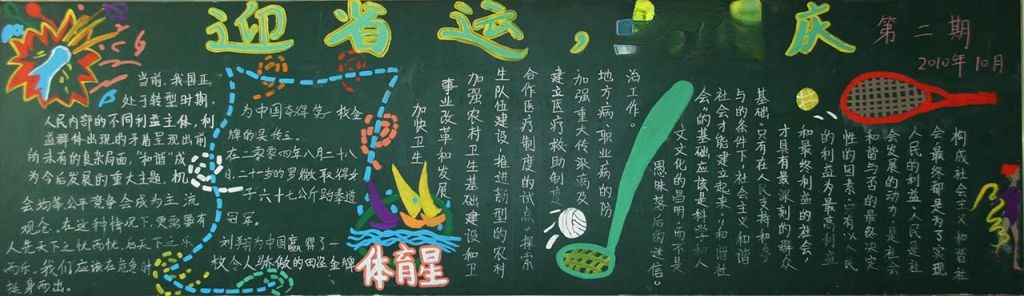 迎省运，庆
第二期
2010年10月
当前，我国正
处于转型时期，
人民内部的不同利益主体，利
益群体出现的矛盾呈现出前
所未有的复杂局面，"和谐"成
为今后发展的重大主题，机
会均等公平竞争会成为主流
观念。在这种情况下更需要有
人先天下之忧而忧，后天下之乐
而乐，我们应该在危急时
挺身而出。
为中国夺得第一枚金
牌的是
在二零零四年八月二十八
日，二十一岁的罗微取得女
子六十七公斤跆拳道
冠军。
刘翔为中国赢得了一
枚令人骄傲的田径金牌
体育星
加快卫生
事业改革和发展
加强农村卫生基础建设和卫
生队伍建设，推进新型的农村
合作医疗制度的试点，探索
建立医疗救助制度
加强重大传染病及
地方病、职业病的防
治工作。
思昧落后的迷信。
文文化的昌明，而不是
会。的基础应该是科学、人
社会才能建立起来，和谐性
与的条件下，社会主义和谐
基础。只有在人民支持和参
才具有最深刻的群众
和最终利益的社会
的利益为最高利益
性的因素，一有以人民
和谐与否的最终决定
会发展的动力，是社会
人民的利益，人民是社
会，最终都是为了实现
构成社会主义和谐社